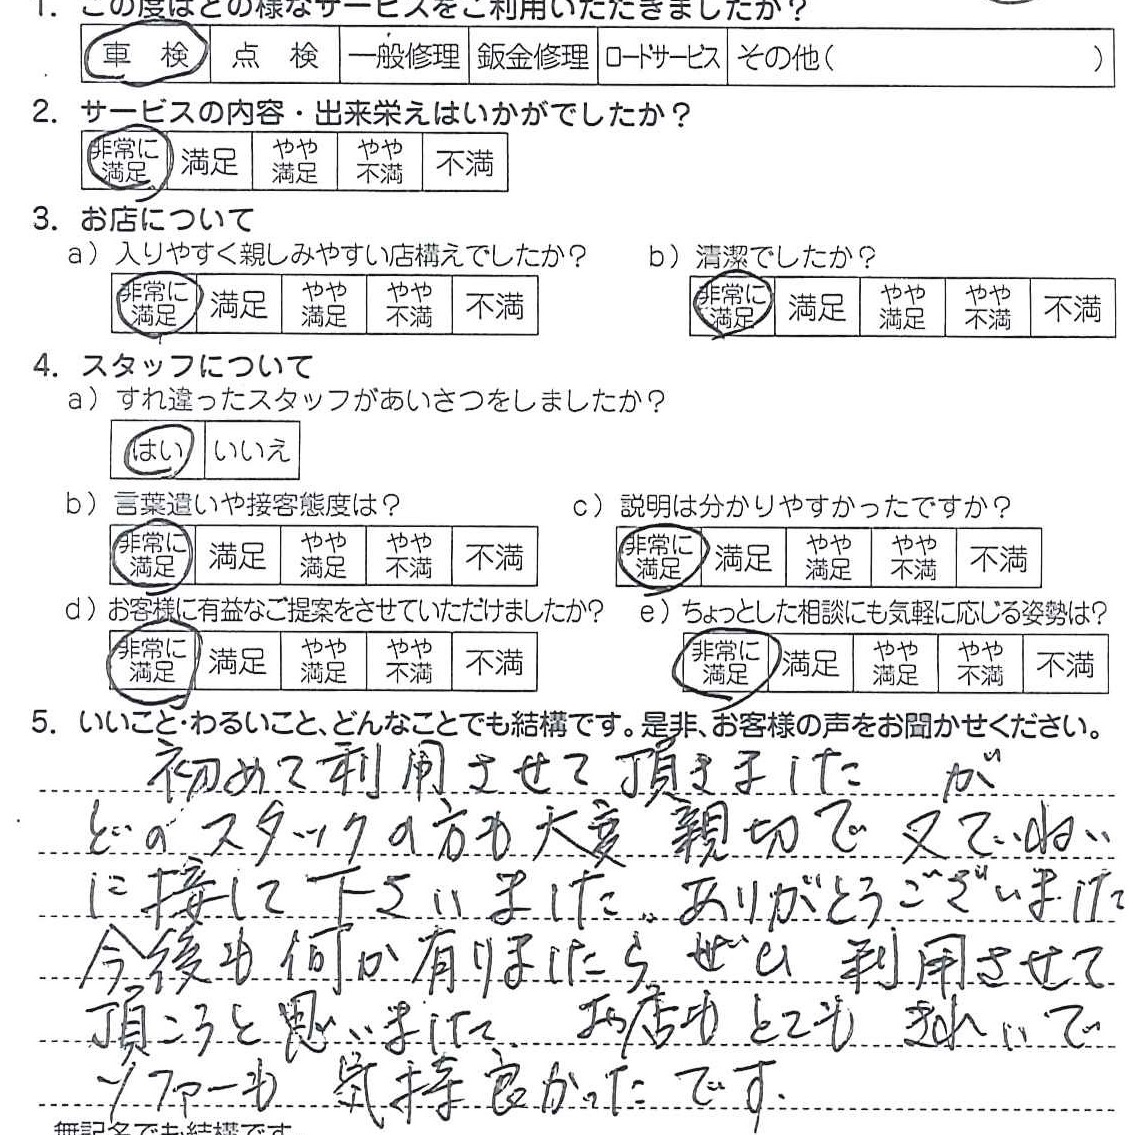 1. この度はどの様なサービスをご利用いただきましたか？
車 検 点 検 一般修理 鈑金修理 ロードサービス その他( )
2. サービスの内容・出来栄えはいかがでしたか？
非常に満足 満足 やや満足 やや不満 不満
3. お店について
a）入りやすく親しみやすい店構えでしたか？ b）清潔でしたか？
非常に満足 満足 やや満足 やや不満 不満 非常に満足 満足 やや満足 やや不満 不満
4. スタッフについて
a）すれ違ったスタッフがあいさつをしましたか？
はい いいえ
b）言葉遣いや接客態度は？ c）説明は分かりやすかったですか？
非常に満足 満足 やや満足 やや不満 不満 非常に満足 満足 やや満足 やや不満 不満
d）お客様に有益なご提案をさせていただけましたか？ e）ちょっとした相談にも気軽に応じる姿勢は？
非常に満足 満足 やや満足 やや不満 不満 非常に満足 満足 やや満足 やや不満 不満
5. いいこと・わるいこと、どんなことでも結構です。是非、お客様の声をお聞かせください。
初めて利用させて頂きましたが
どのスタッフの方も大変親切で又ていねい
に接して下さいました。ありがとうございました
今後も何か有りましたらぜひ利用させて
頂こうと思いました、お店もとてもきれいで
ソファーも気持良かったです.
無記名でも結構です。